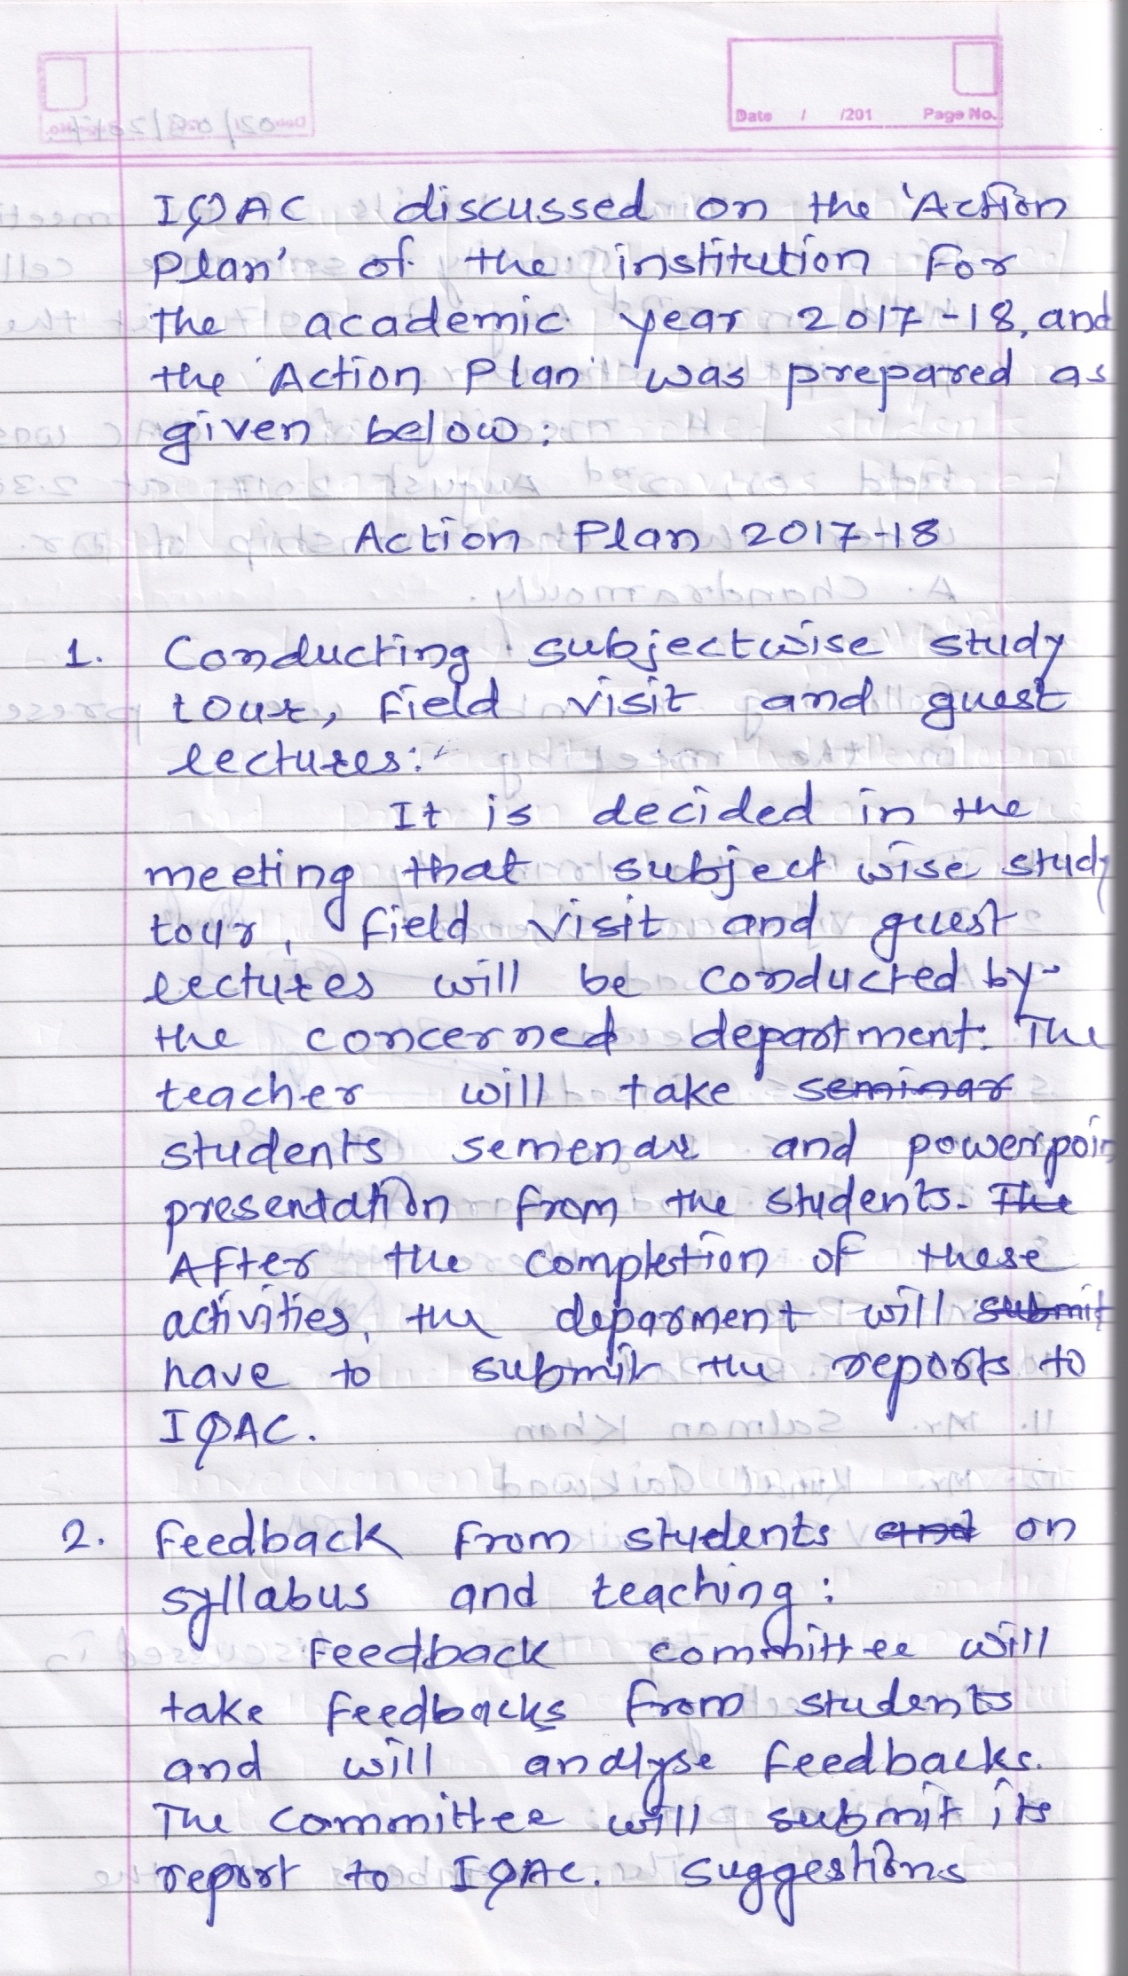 Date / /201 Page No.
IQAC discussed on the 'Action
Plan' of the institution For
the academic year 2017-18, and
the 'Action Plan' was prepared as
given below:
Action Plan 2017-18
1. Conducting subjectwise study
tour, field visit and guest
lectures:-
It is decided in the
meeting that subject wise study
tour, field visit and guest
lectures will be conducted by
the concerned department. The
teacher will take seminar
students semenar and powerpoin
presentation from the students. The
After the completion of these
activities, the deparment will submit
have to submit the reports to
IQAC.
2. Feedback from students and on
syllabus and teaching:
Feedback committee will
take feedbacks from students
and will analyse feedbacks.
The committee will submit its
report to IQAC. Suggestions